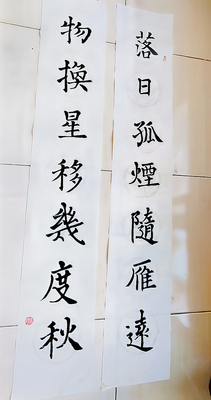 落日孤煙隨雁遠
物換星移幾度秋